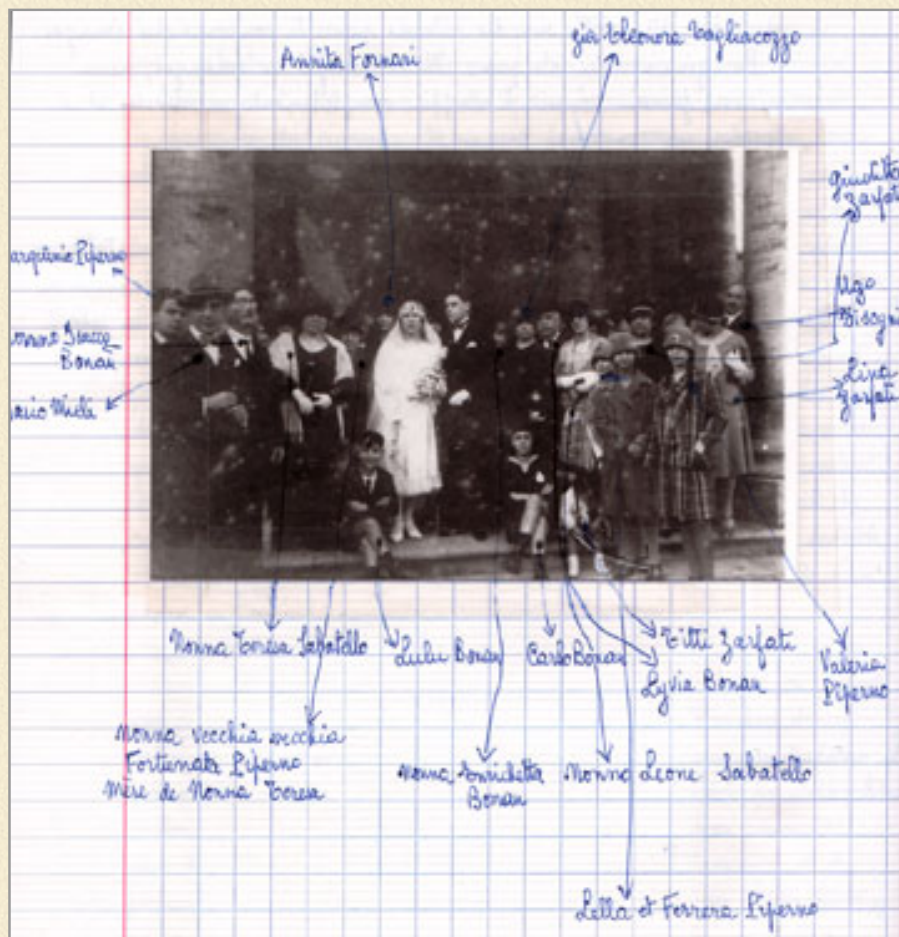 Annita Fornari
zia Eleonora Tagliacozzo
Giuditta
Zarfati
Piperno
Bonan
Ugo
Disegni
Lina
Zarfati
Nonna Teresa Sabatello
Lulu Bonan
Carlo Bonan
Titti Zarfati
Lyvia Bonan
Valeria
Piperno
Nonna vecchia vecchia
Fortunata Piperno
Mère de Nonna Teresa
Nonna Enrichetta
Bonan
Nonno Leone Sabatello
Lella et Ferrera Piperno